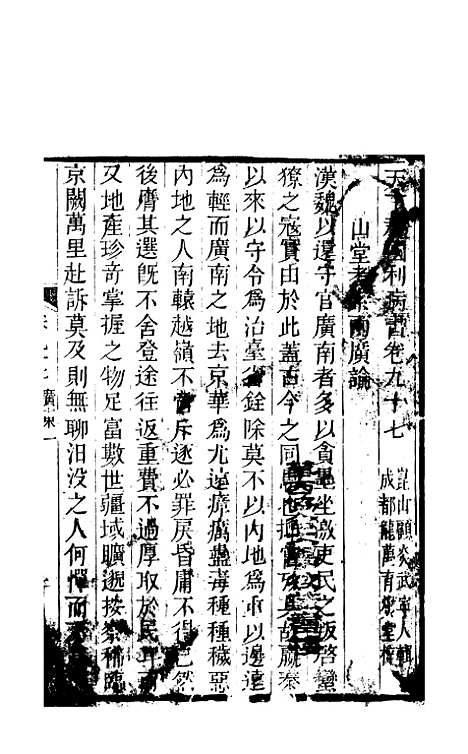 天下郡國利病書卷九十七
崑山顧炎武寧人輯
成都龍萬育燮堂校
山堂考索兩廣論
漢魏以還守官廣南者多以貪墨坐激吏民之叛啓蠻
獠之寇實由於此蓋古今之同也嬴秦
以來以守令為治臺省銓除莫不以內地為重以邊遠
為輕而廣南之地去京華為尤遠瘴癘蠱毒種種穢惡
內地之人南轅越嶺不啻斥逐必罪戾昏庸不得已然
後膺其選旣不舍登途往返重費不過厚取於民耳
又地產珍奇掌握之物足富數世疆域曠邈按察稀臨
京闕萬里赴訴莫及則無聊汨没之人何憚而
廣東一